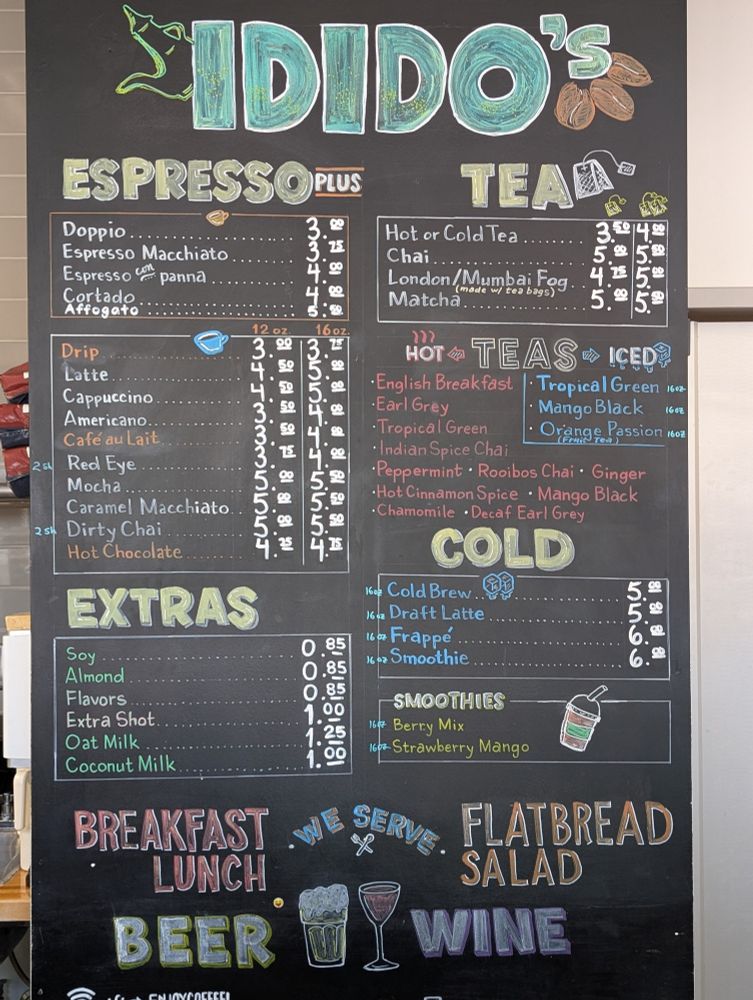 IDIDO's
ESPRESSO PLUS
Doppio 3.00
Espresso Macchiato 3.75
Espresso con panna 4.00
Cortado 4.00
Affogato 5.50
12 oz. 16 oz.
Drip 3.00 3.75
Latte 4.50 5.00
Cappuccino 4.50 5.00
Americano 3.50 4.00
Café au Lait 3.50 4.00
2sh Red Eye 3.75 4.00
Mocha 5.00 5.50
Caramel Macchiato 5.00 5.50
2sh Dirty Chai 5.00 5.50
Hot Chocolate 4.25 4.75
EXTRAS
Soy 0.85
Almond 0.85
Flavors 0.85
Extra Shot 1.00
Oat Milk 1.25
Coconut Milk 1.00
TEA
Hot or Cold Tea 3.50 4.00
Chai 5.00 5.50
London/Mumbai Fog 4.75 5.50
(made w/ tea bags)
Matcha 5.00 5.50
HOT TEAS ICED
· English Breakfast
· Earl Grey
· Tropical Green
· Indian Spice Chai
· Peppermint · Rooibos Chai · Ginger
· Hot Cinnamon Spice · Mango Black
· Chamomile · Decaf Earl Grey
· Tropical Green 16oz
· Mango Black 16oz
· Orange Passion 16oz
(Fruit Tea)
COLD
16oz Cold Brew 5.00
16oz Draft Latte 5.00
16oz Frappé 6.00
16oz Smoothie 6.00
SMOOTHIES
16oz Berry Mix
16oz Strawberry Mango
BREAKFAST
LUNCH
· WE SERVE ·
FLATBREAD
SALAD
BEER
WINE
ENJOYCOFFEE!